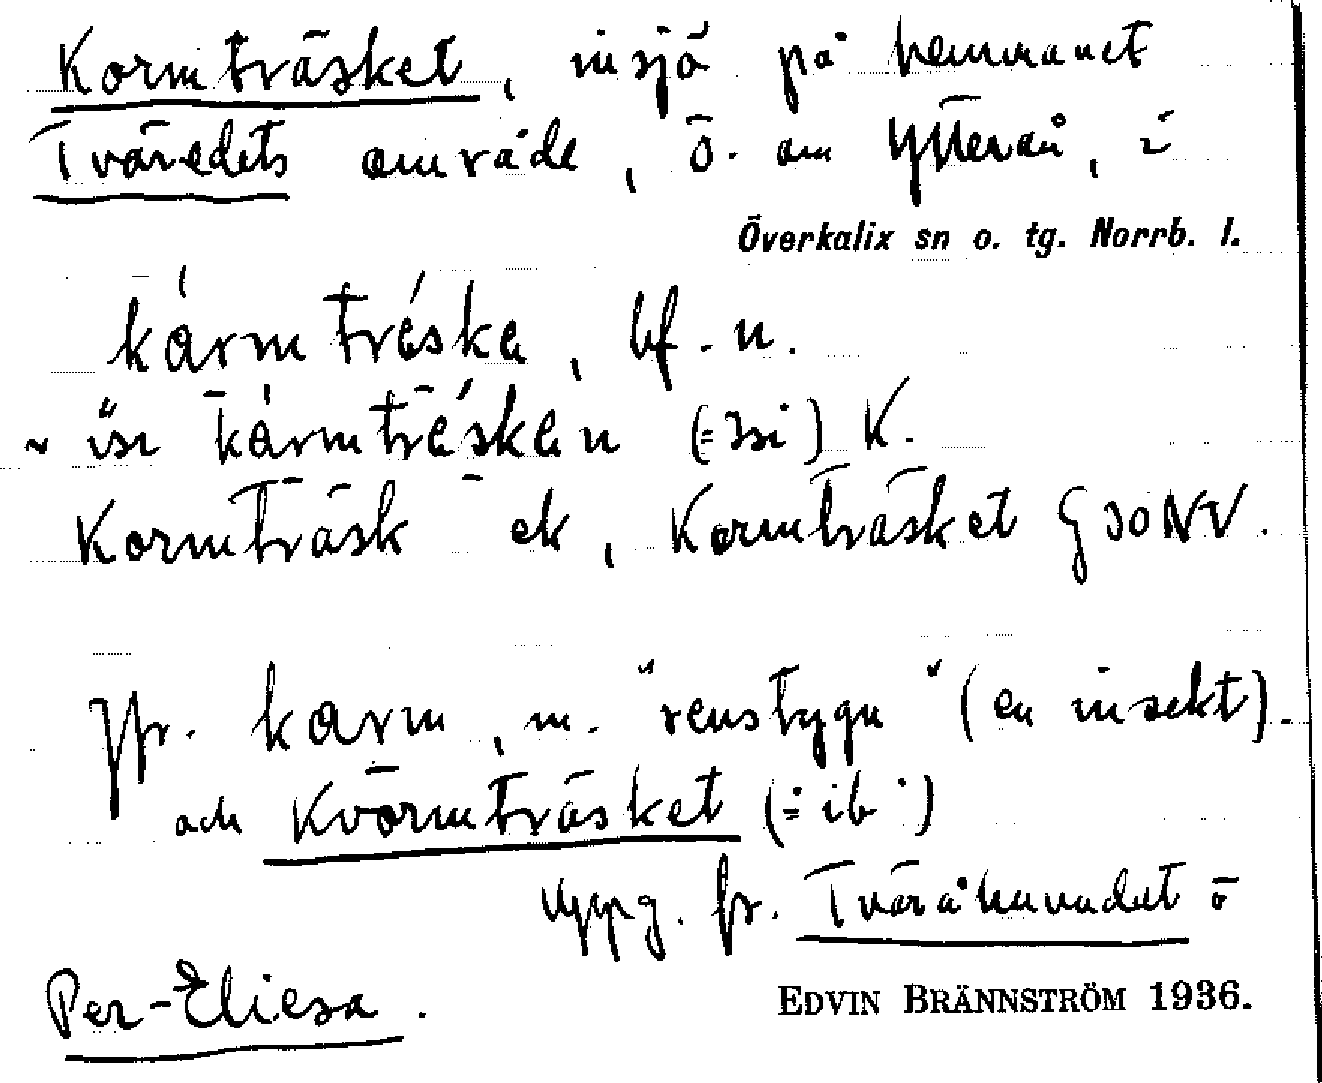 Kormträsket, insjö på hemmanet
Tväredets område, ö. om Ytterån, i
Överkalix sn o. tg. Norrb. l.
kårmtréske, bf. n.
~ isr kårmtrésken (= ssi) K.
Kormträsk ek, Kormträsket G30NV.
Jfr. karm, m. "renstygn" (en insekt).
och Kvörmträsket (= ib.)
uppg. fr. Tväråhuvudet o
Per-Eliesa.
EDVIN BRÄNNSTRÖM 1936.